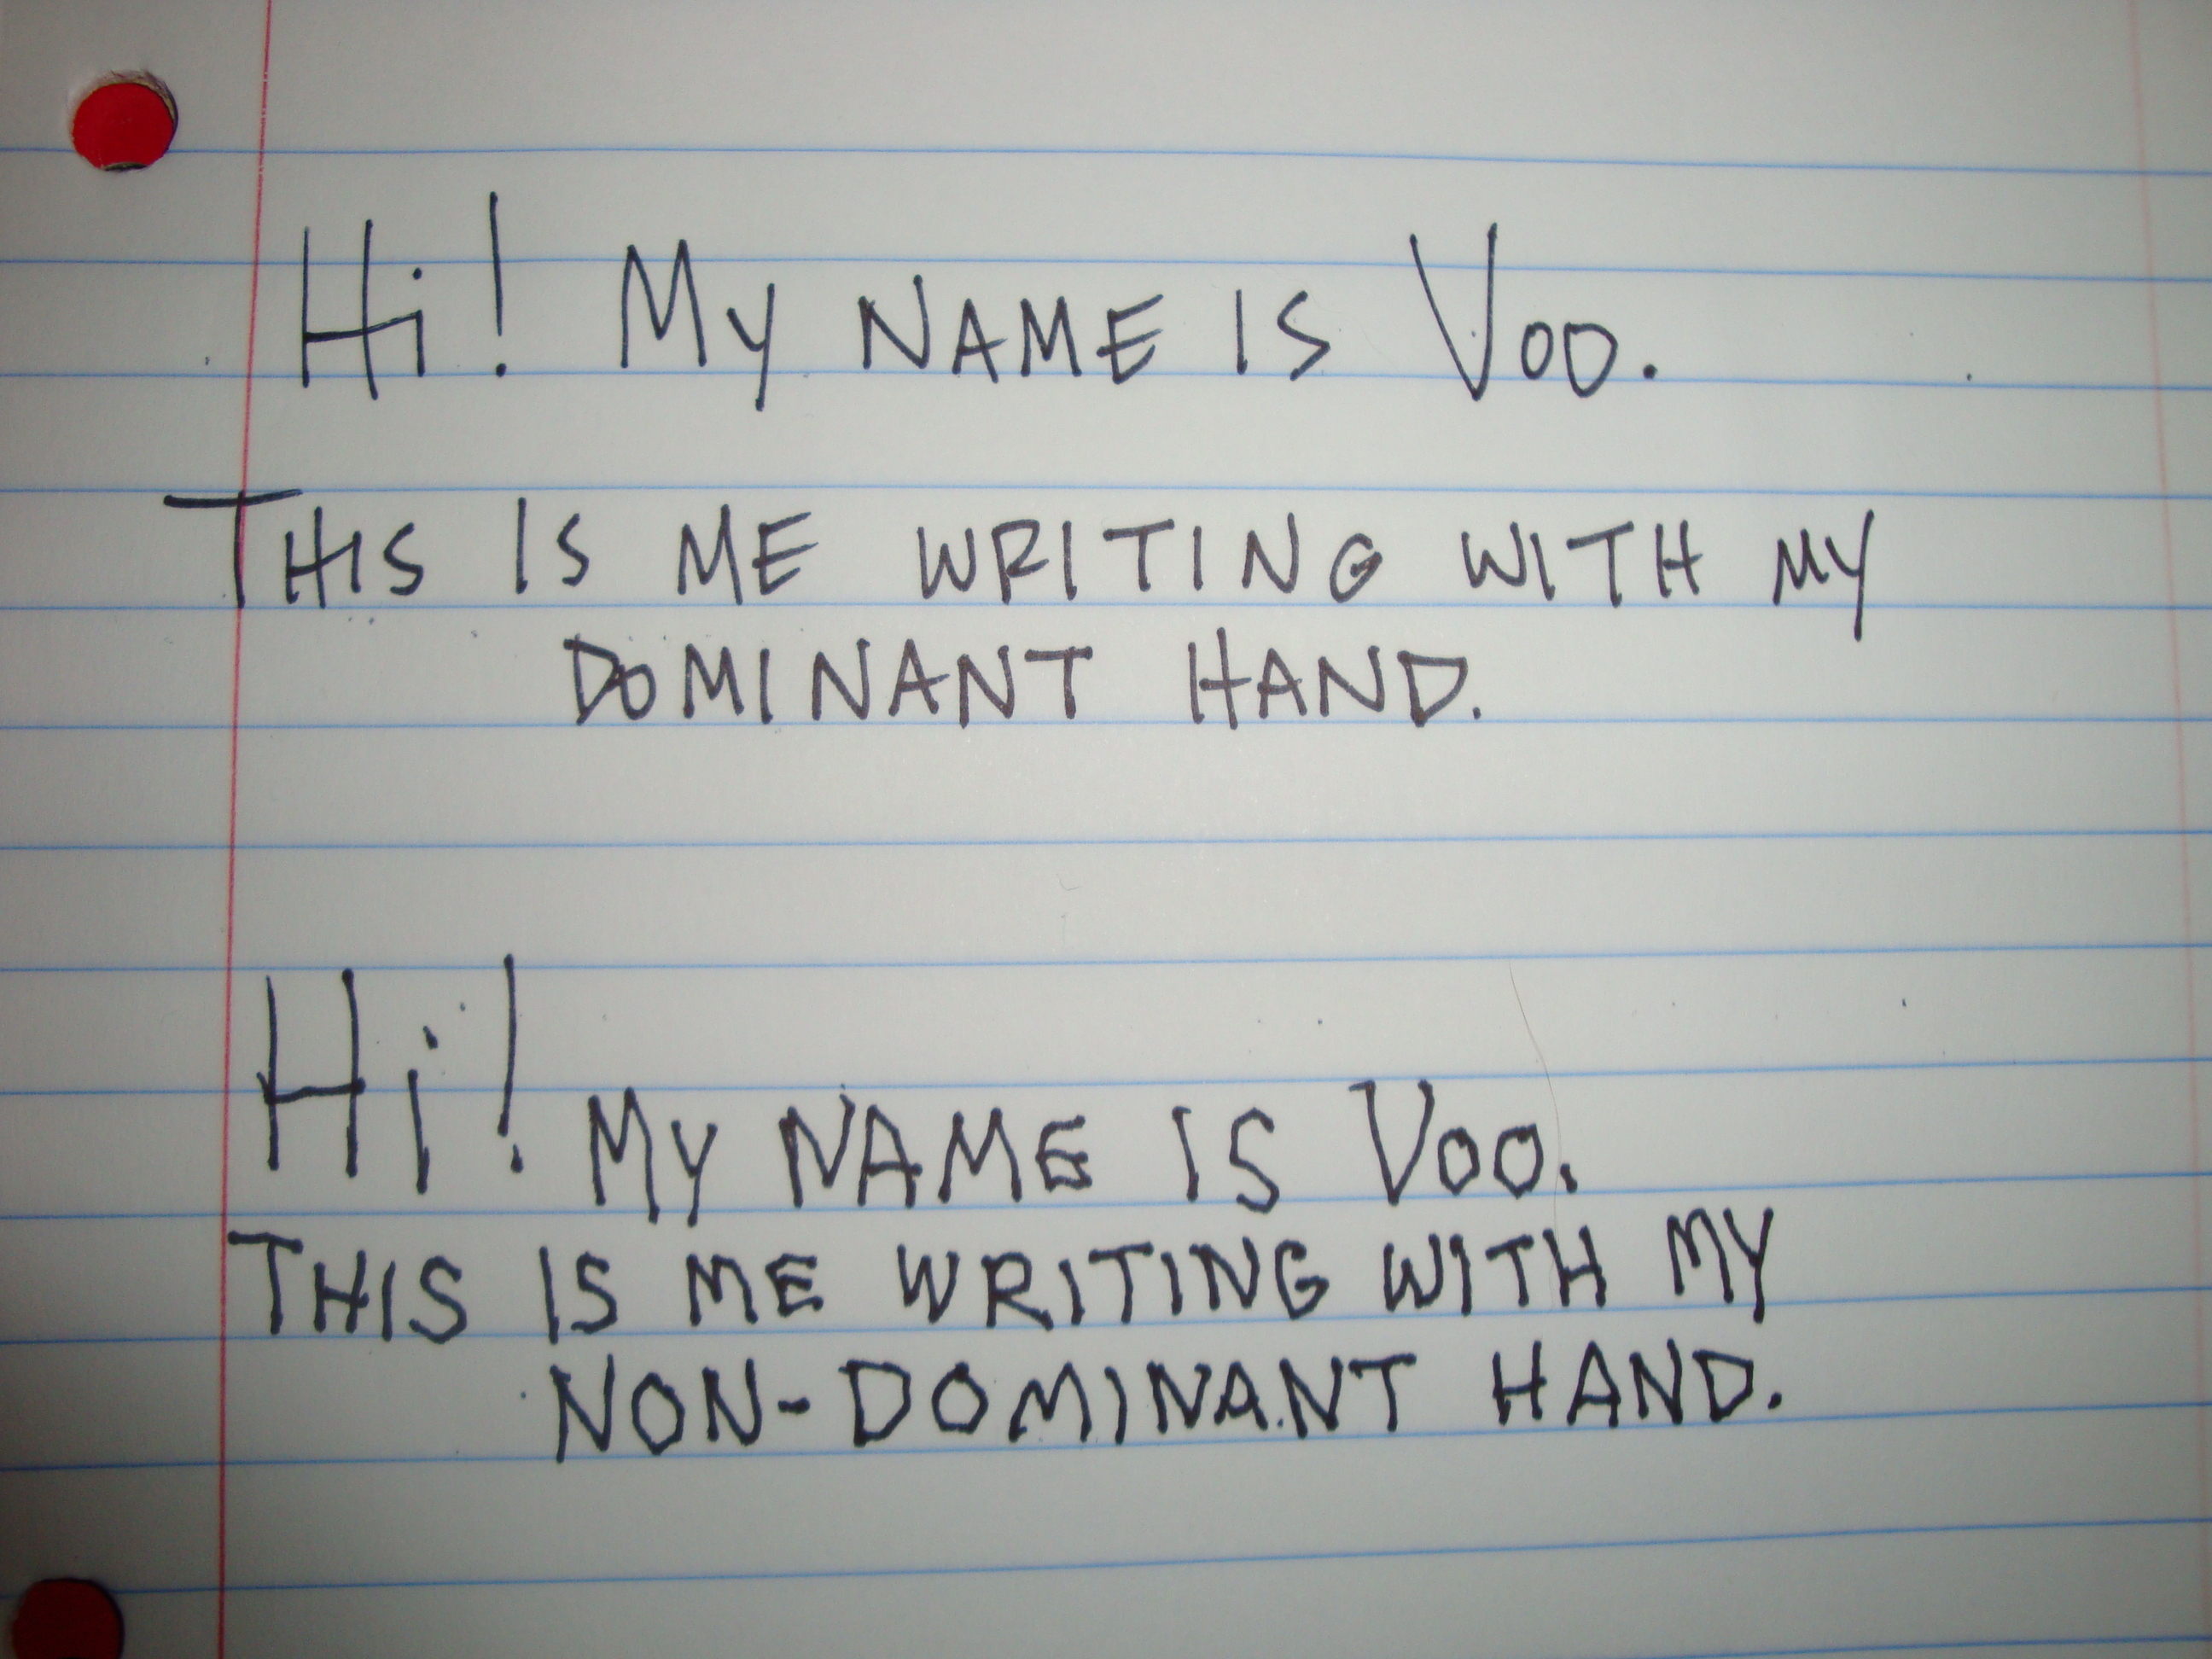 Hi! MY NAME IS VOO.
THIS IS ME WRITING WITH MY
DOMINANT HAND.
Hi! MY NAME IS VOO.
THIS IS ME WRITING WITH MY
NON-DOMINANT HAND.